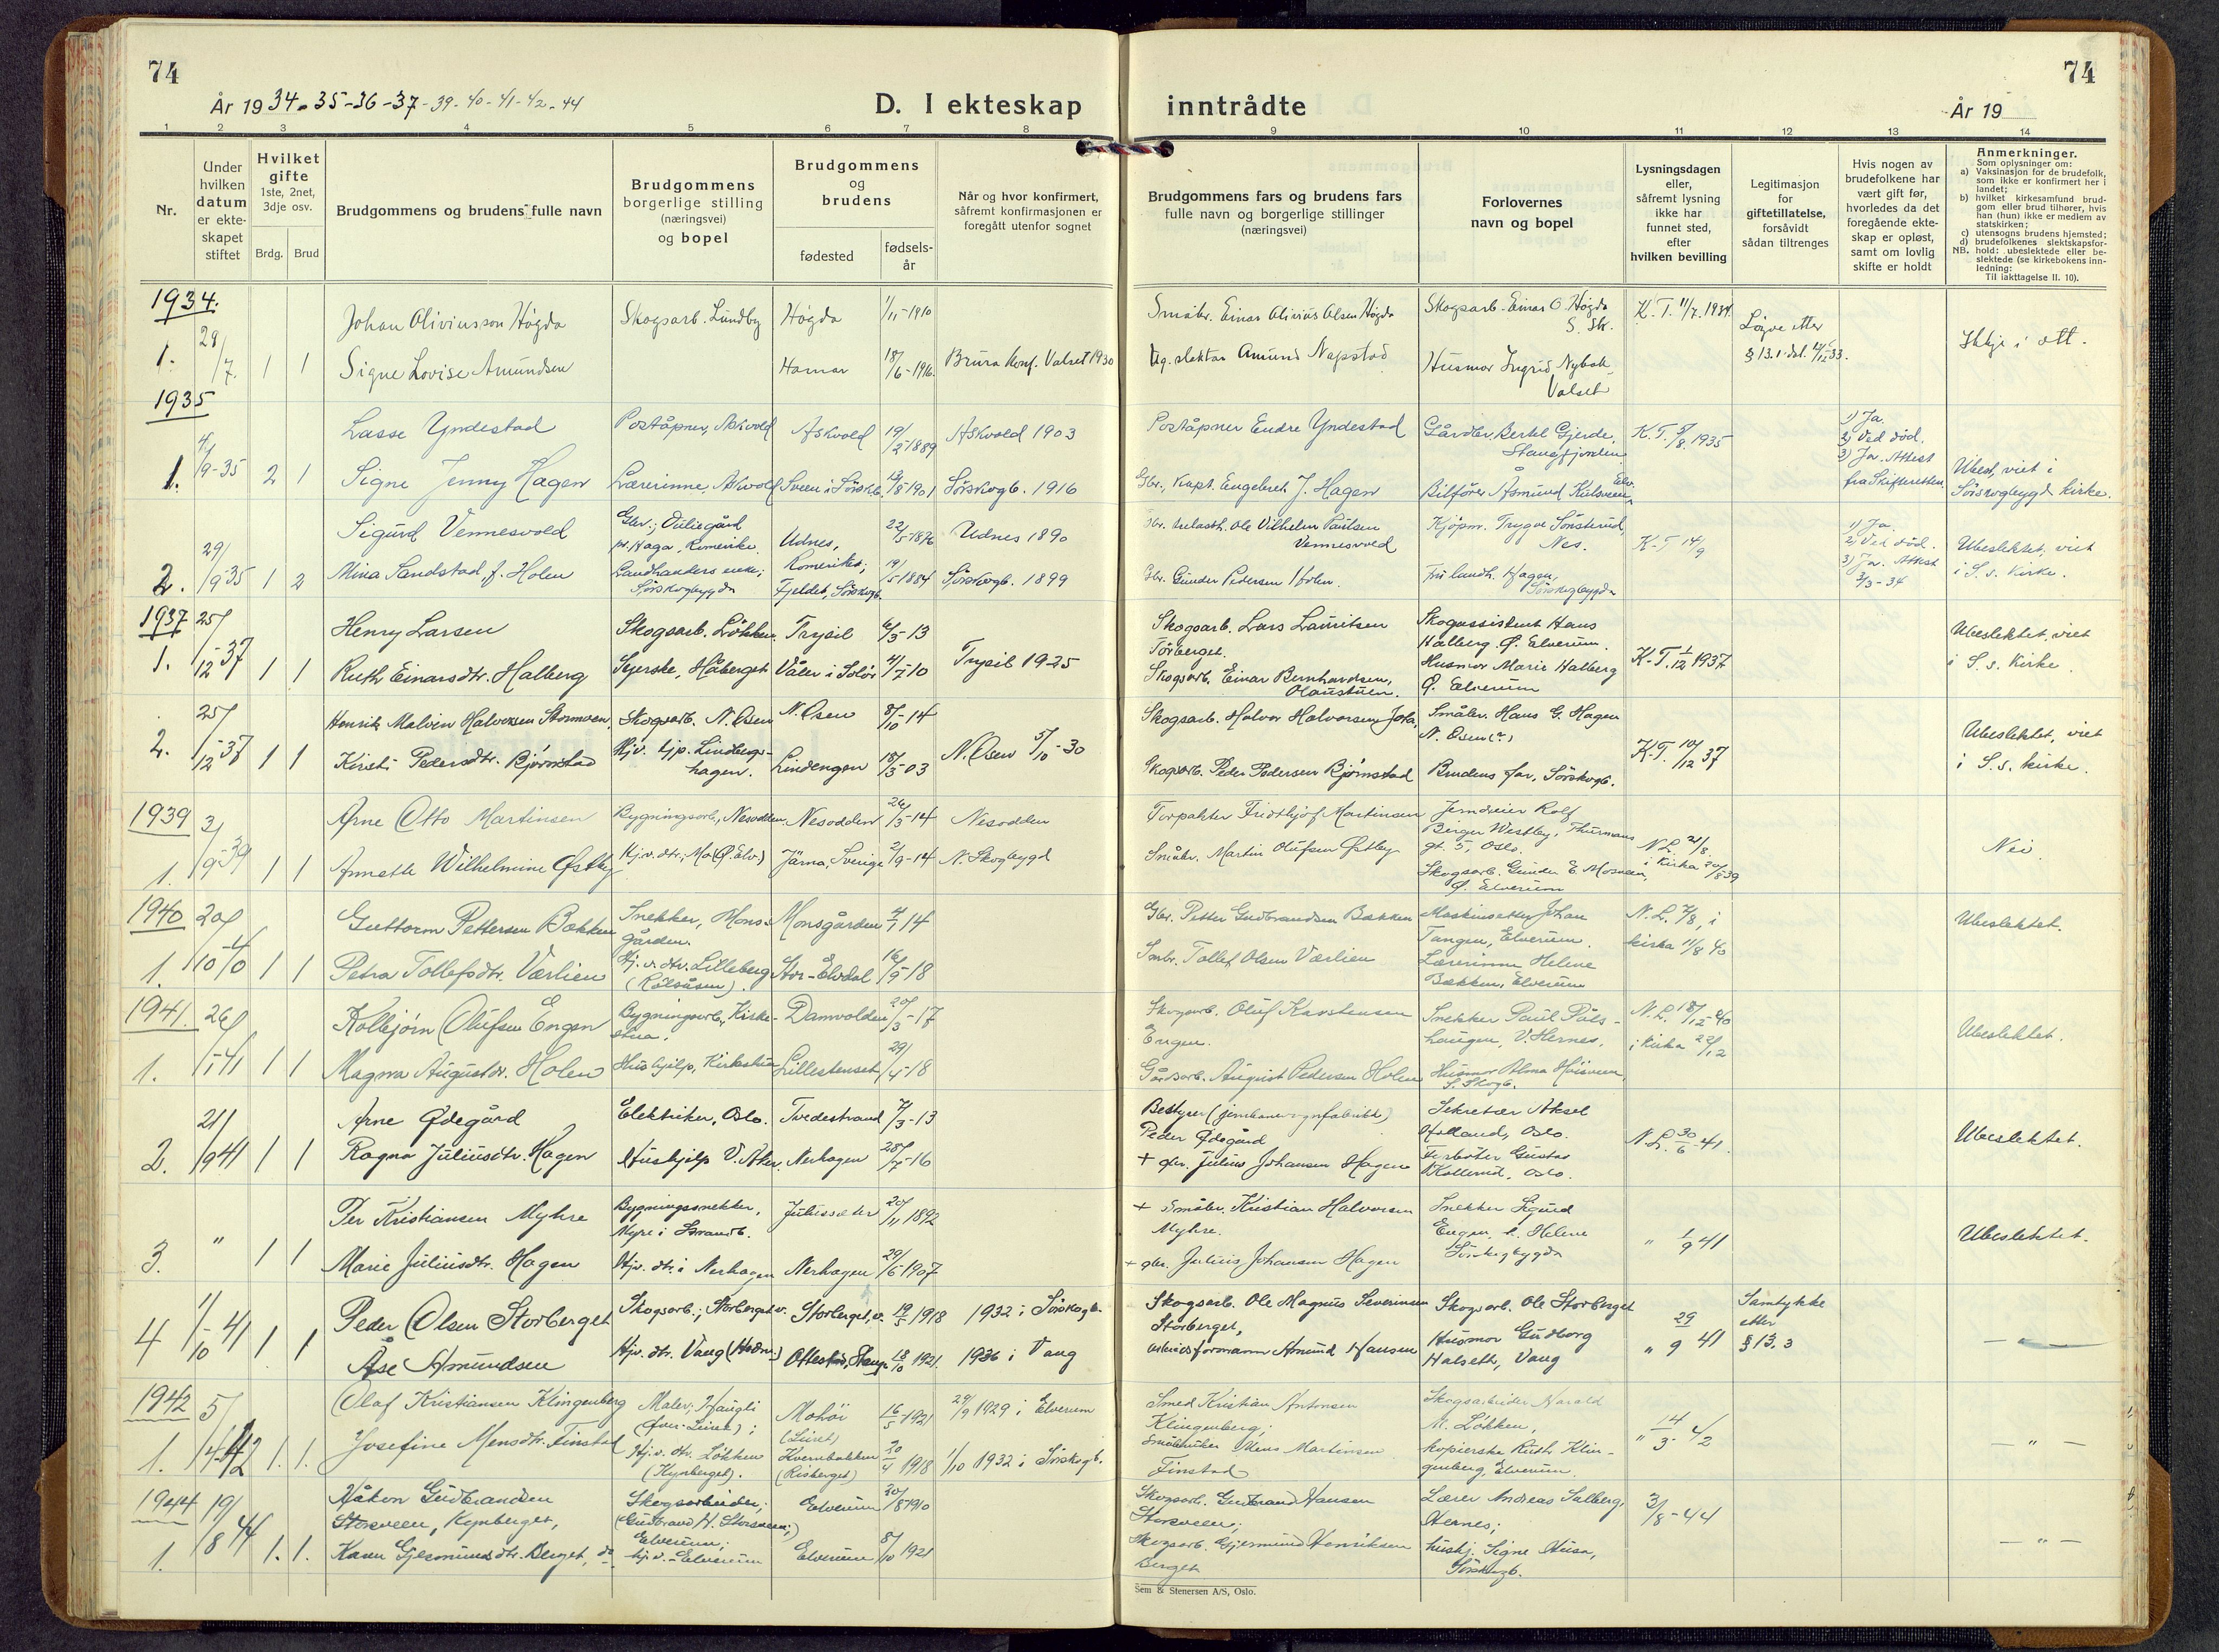 74
År 1934-35-36-37-39-40-41-42-44
D. I ekteskap
inntrådte
74
År 19
1 2 3 4 5 6 7 8 9 10 11 12 13 14
Nr.
Under hvilken datum er ekteskapet stiftet
Hvilket gifte
1ste, 2net, 3dje osv.
Brdg. Brud
Brudgommens og brudens fulle navn
Brudgommens borgerlige stilling (næringsvei) og bopel
Brudgommens og brudens
fødested
fødselsår
Når og hvor konfirmert, såfremt konfirmasjonen er foregått utenfor sognet
Brudgommens fars og brudens fars fulle navn og borgerlige stillinger (næringsvei)
Forlovernes navn og bopel
Lysningsdagen eller, såfremt lysning ikke har funnet sted, efter hvilken bevilling
Legitimasjon for giftetillatelse, forsåvidt sådan tiltrenges
Hvis nogen av brudefolkene har vært gift før, hvorledes da det foregående ekteskap er opløst, samt om lovlig skifte er holdt
Anmerkninger.
Som oplysninger om:
a) Vaksinasjon for de brudefolk, som ikke er konfirmert her i landet;
b) hvilket kirkesamfund brudgom eller brud tilhører, hvis han (hun) ikke er medlem av statskirken;
c) utensogns brudens hjemsted;
d) brudefolkenes slektskapsforhold: ubeslektede eller beslektede (se kirkebokens innledning:
NB.
Til iakttagelse II. 10).
1934.
Johan Oliviusson Høgda Skogsarb. Lundby Høgda 1/11-1910 Småbr. Einar Olivius Olsen Høgda Skogsarb. Einar O. Høgda S. Sk. K.T. 11/7.1934. Løyve etter
1. 29/7. 1 1 Signe Lovise Amundsen Hamar 18/6-1916. Brura konf. Valset 1930 Amund Napstad Husmor Ingrid Nybak Valset § 13.1 Ikkje i ætt.
1935
Lasse Yndestad Poståpner, Askvold Askvold 19/2-1889 Askvold 1903 Poståpner Endre Yndestad Gårdbr. Bertel Gjerde, Stangfjorden K.T. 8/8.1935 1) Ja. 2) Ved død. 3) Ja. Attest fra Skifteretten.
1. 4/9-35 2 1 Signe Jenny Hagen Lærerinne, Askvold Sveen i Sörskb. 13/8-1901 Sörskogb. 1916 Gbr., Kapt. Engebret J. Hagen Bilfører Åsmund Kulsveen, Elv. Ubesl, viet i Sörskogbygd kirke.
Sigurd Vennesvold Gbr.; Duliegård pr. Haga, Romerike. Udnes, Romerike; 22/5-1876 Udnes 1890 Ole Vilhelm Paulsen Vennesvold Kjøpm. Trygve Sönsterud, Nes. K-T 14/9 1) Ja. 2) Ved död. 3) Ja. Attest 3/3-34
2. 29/9-35 1 2 Mina Sandstad f. Holen Landhandlers enke; Sörskogbygda Fjeldet, Sörskogb. 19/5 1884 Sörskogb. 1899 Gbr. Gunder Pedersen Holen. Fru landh. Hagen, Sörskogbygda Ubeslektet, viet i S. s. kirke.
1937
Henry Larsen Skogsarb. Lökken. Trysil 6/5-13 Skogsarb. Lars Lauritsen Törberget. Skogassistent Hans Halberg Ø. Elverum.
1. 25/12-37 1 1 Ruth Einarsdtr. Halberg Syerske, Håberget Våler i Solör 4/7-10 Trysil 1925 Skogsarb. Einar Bernhardsen, Olaustuen. Husmor Marie Halberg Ø. Elverum K-T. 1/12 1937 Ubeslektet, viet i S. s. kirke.
Henrik Malvin Halvorsen Stormoen Skogsarb. N. Osen N. Osen 8/10-14 Skogsarb. Halvor Halvorsen Jota, Småbr. Hans G. Hagen N. Osen (?)
2. 25/12-37 1 1 Kirsti Pedersdtr. Bjørnstad Hjv. hjp. Lindbergshagen. Lindengen 18/3-03 N. Osen 5/10-30 Skogsarb. Peder Pedersen Bjørnstad Brudens far, Sörskogb. K.T. 10/12 37 Ubeslektet, viet i S.s. kirke.
1939
Arne Otto Martinsen Bygningsarb., Nesodden. Nesodden 26/3-14 Nesodden Fridthjof Martinsen Rolf Birger Westby, Thurmans gt. 5, Oslo.
1. 3/9-39 1 1 Annette Wilhelmine Østby Hjv. dtr; Mo (Ø. Elv.) Järna, Sverige 2/9-14 N. Skogbygd Småbr. Martin Olufsen Østby Skogsarb. Gunder E. Mosveen, Ø. Elverum N.L. 21/8 i Kirka 20/8 39 Nei.
1940
Guttorm Pettersen Bækken Snekker, Monsgården. Monsgården 4/7 14 Gbr. Petter Gudbrandsen Bækken Johan Tangen, Elverum. N.L. 7/8, i kirka 11/8 40 Ubeslektet.
1. 20/10-40 1 1 Petra Tollefsdtr. Værlien Hj. v. dtr. Lilleberg Stor-Elvdal 16/9-18 Smbr. Tollef Olsen Værlien Lærerinne Helene Bækken, Elverum
1941.
Kolbjörn Olufsen Engen Bygningsarb., Kirkestua. Damvolden 20/3-17 Skogsarb. Oluf Karstensen Engen. Snekker Paul Pålshaugen, V. Hernes, N.L. 18/12-40 i Kirka 22/12 Ubeslektet.
1. 26/1-41 1 1 Magna Augustdr. Holen Hushjelp, Kirkestua Lillestenset 29/4-18 Gårdsarb. August Pedersen Holen Husmor Alma S. Skogb.
Arne Ødegård Elektriker, Oslo. Tvedestrand 7/3-13 Bestyrer Peder Ødegård Sekretær Aksel Holland, Oslo.
2. 21/9 41 1 1 Ragna Juliusdtr. Hagen Hushjelp V. Aker. Nerhagen + gbr. Julius Johansen Hagen Gustav Kollerud, Oslo. N.L. 30/6-41. Ubeslektet.
Per Kristiansen Myhre Bygningssnekker, Myre i Julussæter 20/11 1892 + Småbr. Kristian Halvorsen Myhre. Snekker Sigurd Engen, Helene Sörskogbygda
3. " 1 1 Marie Juliusdtr. Hagen Hjv. dtr. i Nerhagen Nerhagen 29/6 1907 + gbr. Julius Johansen Hagen " 1/9 41 Ubeslektet.
Peder Olsen Storberget Skogsarb.; Storberget v. Storberget, v. 19/5 1918 1932 i Sörskogb. Skogsarb. Ole Magnus Severinsen Storberget, Skogsarb. Ole Storberget Samtykke etter § 13.3
4 1/10-41 1 1 Åse Amundsen Hjv. dtr. Vang (Hedm.) Ottestad, Stange 18/10 1921. 1936 i Vang Amund Hansen Husmor Gudborg Halseth, Vang " 29/9 41 —
1942
Olaf Kristiansen Klingenberg Maler; Haugli Mohöi (Leiret) 16/5-1921 29/9 1929 i Elverum Smed Kristian Antonsen Klingenberg; Skogsarbeider Harald M. Lökken, " 14/3-42
1. 5/4-42 1. 1. Josefine Mensdtr. Finstad Hj. v. dtr. Lökken (Kynberget). Kvernbakken (Risberget) 20/4 1918 1/10 1932 i Sörskogb. Småbruker Mens Martinsen Finstad kopierske Ruth Klingenberg, Elverum. — " —
1944
Håkon Gudbrandsen Storsveen, Kynberget, Skogsarbeider; (Gudbrand H. Storsveen;) Elverum; Elverum 30/8 1910 Skogsarb. Gudbrand Hansen Storsveen; Lærer Andreas Salberg, Hernes; 3/8-44
1. 19/8 44 1. 1. Karen Gjermundsdtr. Berget, do hj. v. - Elverum Elverum 8/10 1921 Skogsarb. Gjermund Henriksen Berget hushj. Signe Husa, Sörskogb. — " —
Sem & Stenersen A/S, Oslo.